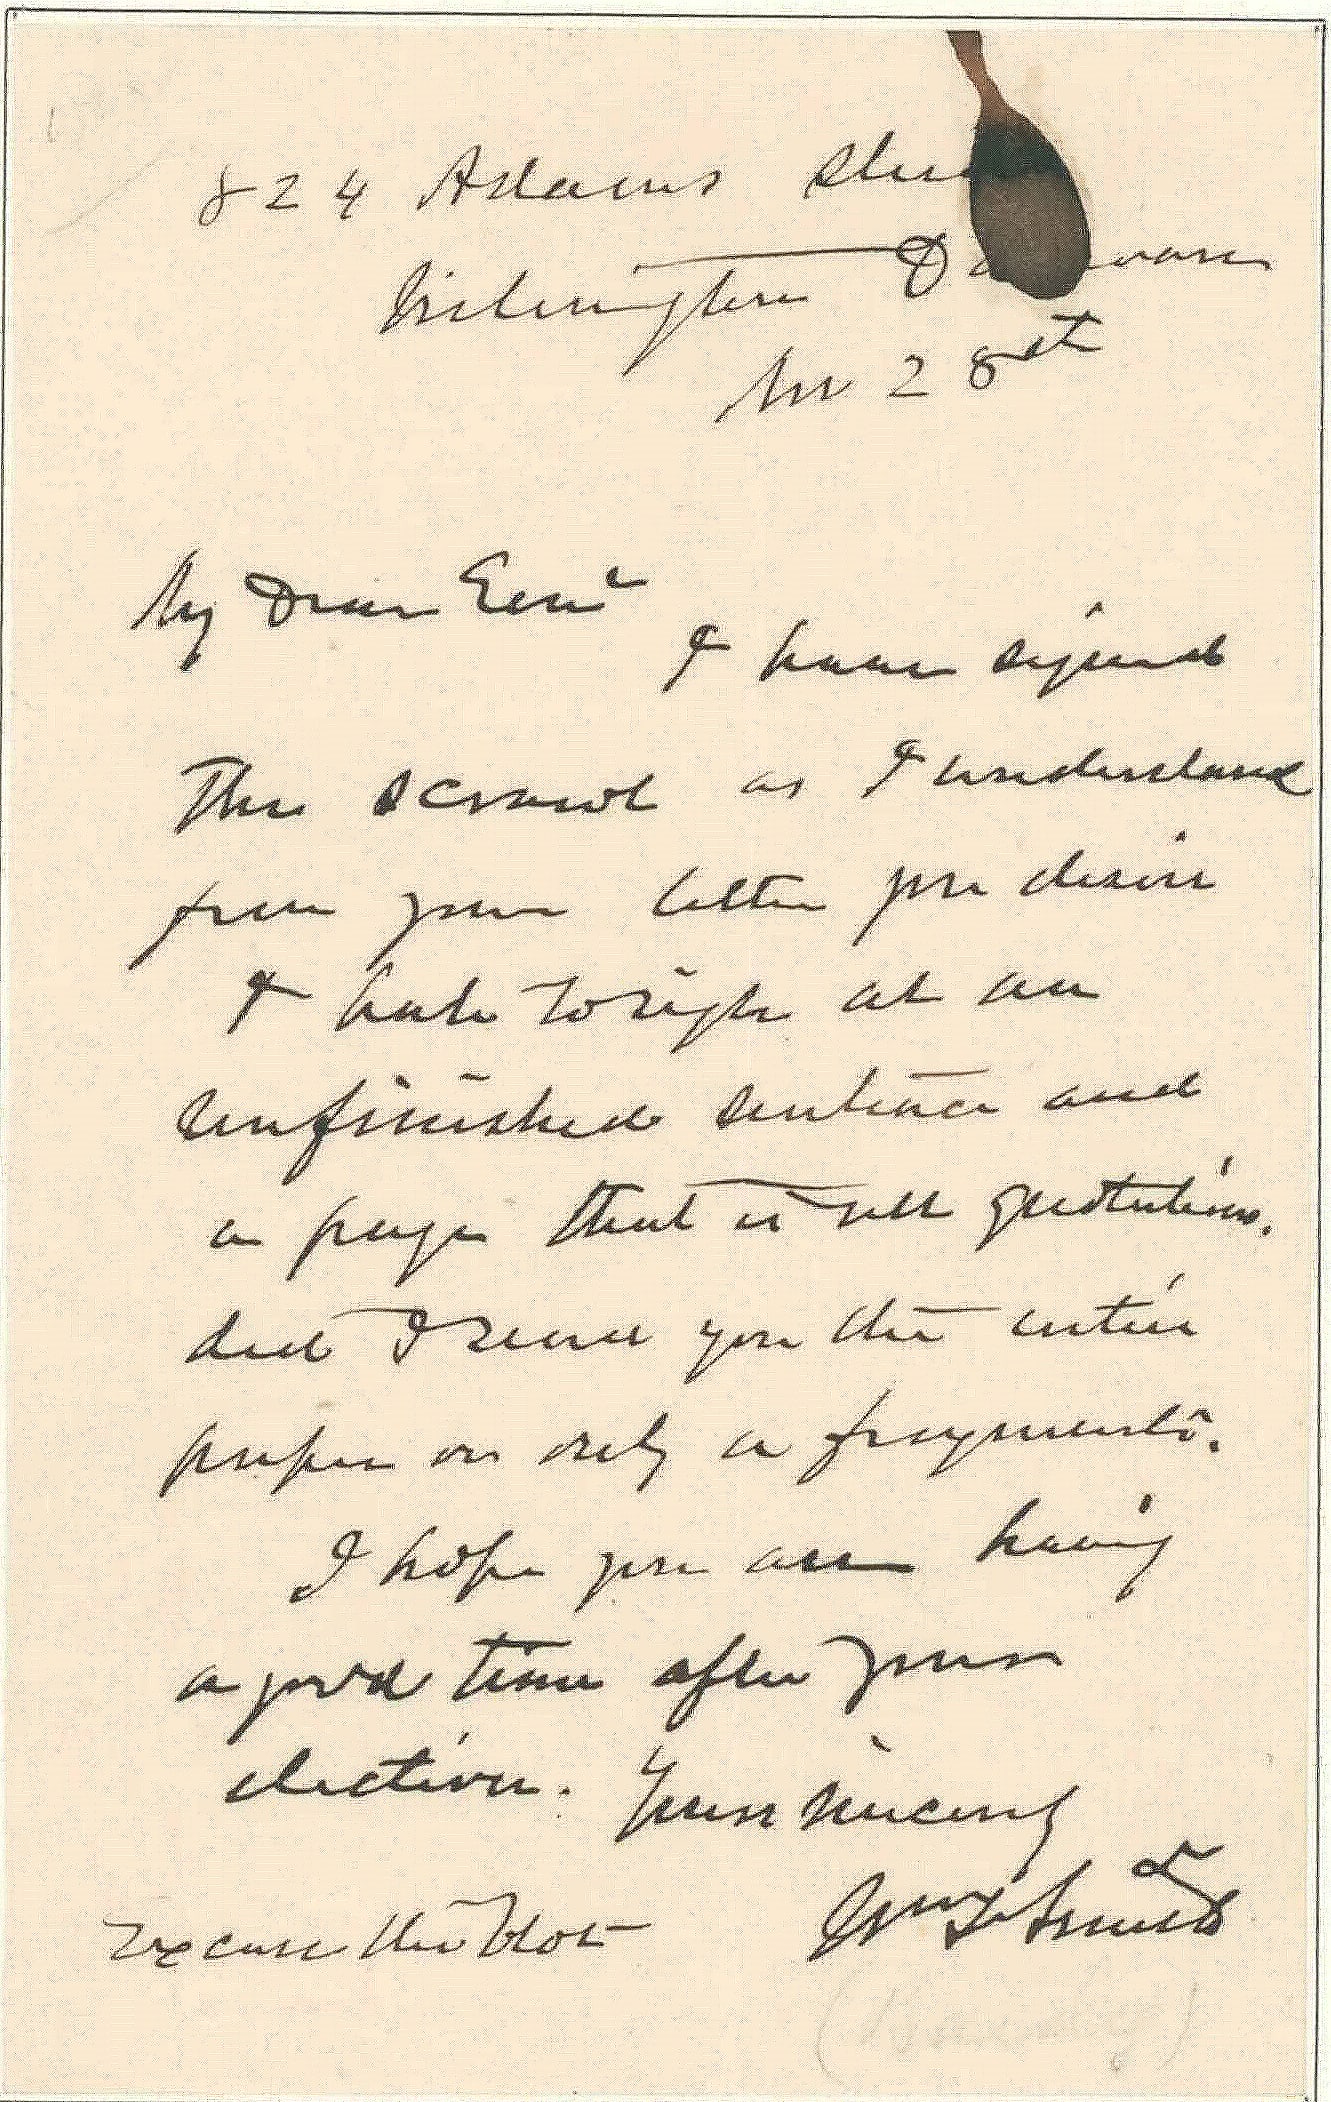 824 Adams Stre
Wilmington Delaware
Nov 28st
My Dear Genl
I have signed
This scrawl as I understand
from your letter you desire
I hate to sign at an
unfinished sentence and
a page that is all quotations.
did I send you the entire
paper or only a fragment.
I hope you are having
a good time after your
election. Yours sincerely
Wm F. Smith
Excuse this blot